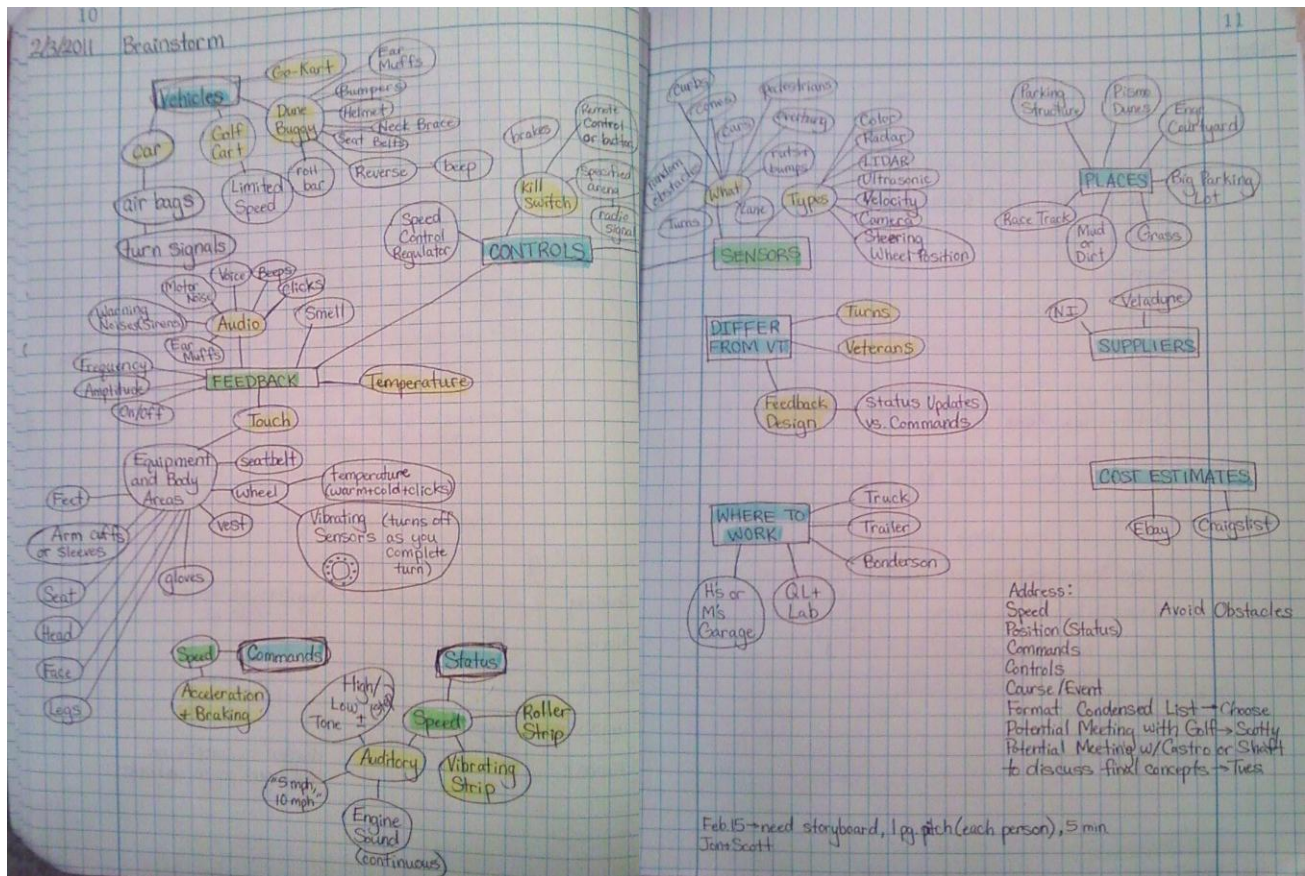 10
2/3/2011 Brainstorm
Vehicles
Go-Kart
Ear
Muffs
Bumpers
Helmet
Neck Brace
Seat Belts
Dune
Buggy
roll
bar
Reverse
beep
Golf
Cart
Limited
Speed
car
air bags
turn signals
brakes
Remote
Control
or button
Kill
Switch
Specified
arena
radio
signal
Speed
Control
Regulator
CONTROLS
Voice
Beeps
clicks
Motor
Noise
Warning
Noises(Sirens)
Audio
Smell
Ear
Muffs
Frequency
Amplitude
On/Off
FEEDBACK
Temperature
Touch
Equipment
and Body
Areas
seatbelt
wheel
temperature
(warm+cold+clicks)
Vibrating (turns off
Sensors as you
complete
turn)
vest
gloves
Feet
Arm cuffs
or sleeves
Seat
Head
Face
Legs
Speed
Commands
Acceleration
+ Braking
Status
High/
Low
Tone ±
Speed
Roller
Strip
Auditory
Vibrating
Strip
"5mph,
10mph"
Engine
Sound
(continuous)
11
curbs
cones
cars
pedestrians
overhang
ruts+
bumps
random
obstacles
What
Turns
Lane
Types
Color
Radar
LIDAR
Ultrasonic
Velocity
Camera
Steering
Wheel Position
SENSORS
Parking
Structure
Pismo
Dunes
Engr
Courtyard
PLACES
Big Parking
Lot
Race Track
Mud
or
Dirt
Grass
DIFFER
FROM VT
Turns
Veterans
Feedback
Design
Status Updates
vs. Commands
NI
Veladyne
SUPPLIERS
COST ESTIMATES
Ebay
Craigslist
WHERE TO
WORK
Truck
Trailer
Bonderson
H's or
M's
Garage
QL+
Lab
Address:
Speed Avoid Obstacles
Position (Status)
Commands
Controls
Course/Event
Format Condensed List → Choose
Potential Meeting with Golf → Scotty
Potential Meeting w/Castro or Shaft
to discuss final concepts → Tues
Feb.15 → need storyboard, 1 pg. pitch (each person), 5 min
Jon+Scott